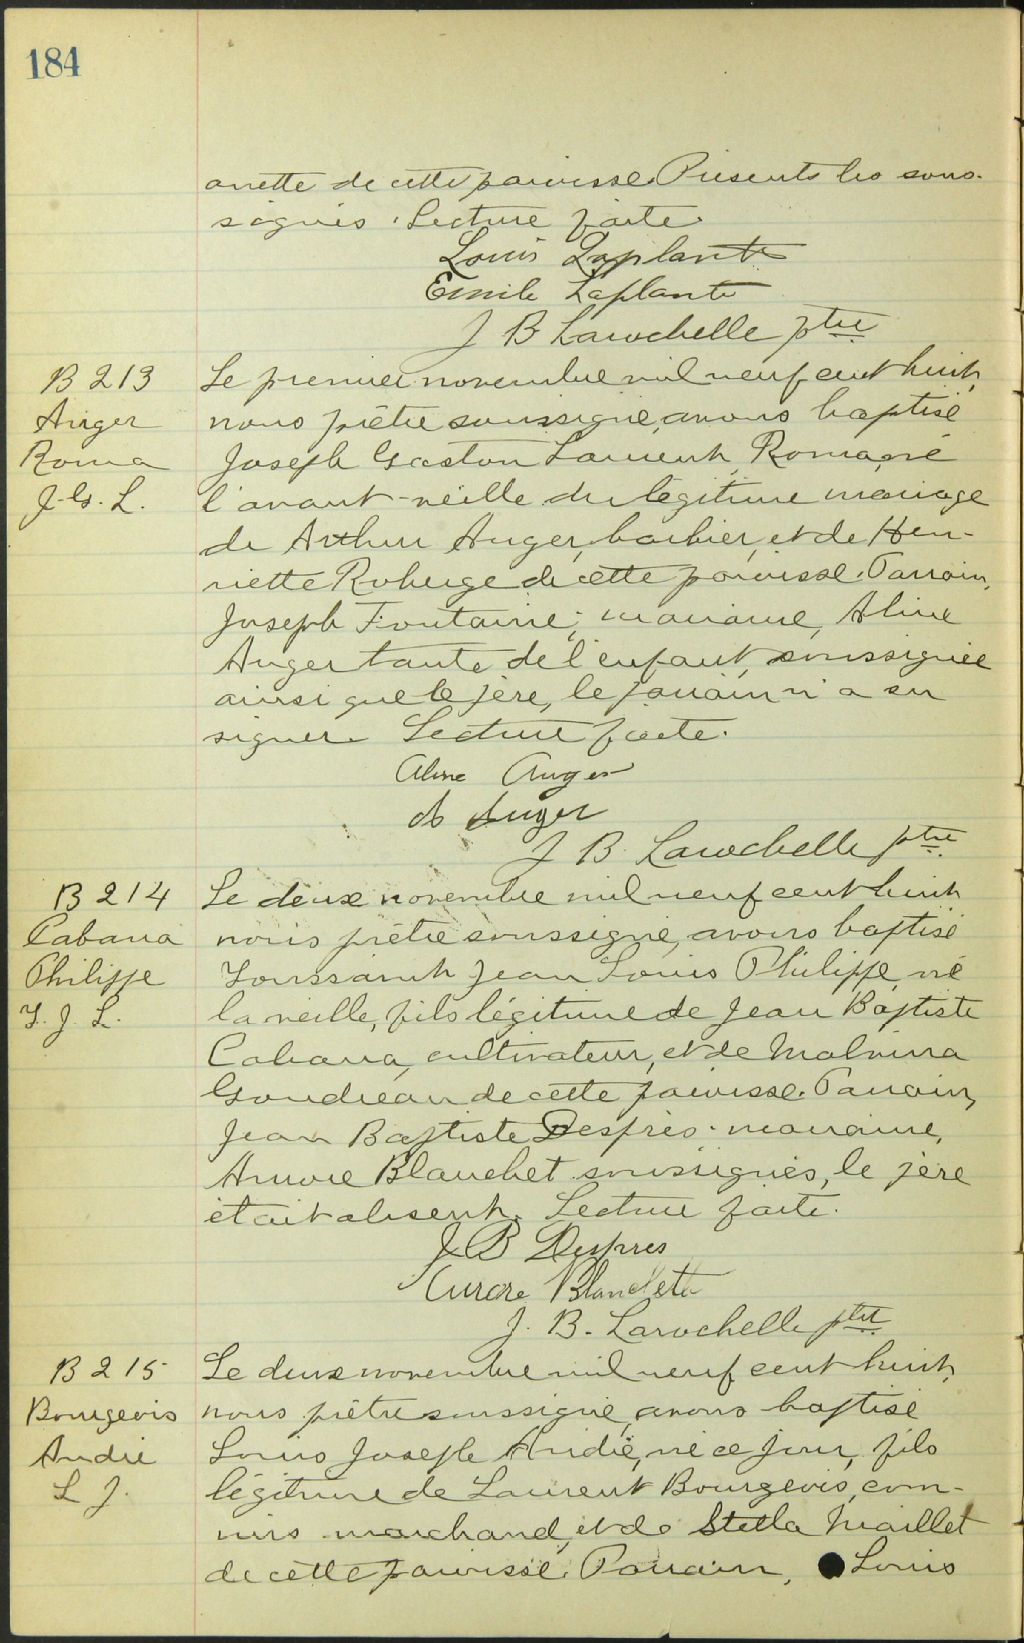 184
anette de cette paroisse. Présents les sous-
signés. Lecture faite.
Louis Laplante
Emile Laplante
J B Larochelle ptre
B 213
Auger
Roma
J. G. L.
Le premier novembre mil neuf cent huit,
nous prêtre soussigné, avons baptisé
Joseph Gaston Laurent Roma, né
l'avant-veille du légitime mariage
de Arthur Auger, barbier, et de Hen-
riette Roberge de cette paroisse. Parrain,
Joseph Fontaine; marraine, Aline
Auger tante de l'enfant soussignée
ainsi que le père, le parrain n'a su
signer. Lecture faite.
Aline Auger
A Auger
J B Larochelle ptre
B 214
Cabana
Philippe
T. J. L.
Le deux novembre mil neuf cent huit
nous prêtre soussigné, avons baptisé
Toussaint Jean Louis Philippe, né
la veille, fils légitime de Jean Baptiste
Cabana, cultivateur, et de Malvina
Goudreau de cette paroisse. Parrain,
Jean Baptiste Desprès. marraine,
Aurore Blanchet soussignés, le père
était absent. Lecture faite.
J B Despres
Aurore Blanchette
J. B. Larochelle ptre
B 215
Bourgeois
André
L J.
Le deux novembre mil neuf cent huit,
nous prêtre soussigné, avons baptisé
Louis Joseph André, né ce jour, fils
légitime de Laurent Bourgeois, com-
mis marchand, et de Stella Maillet
de cette paroisse. Parrain, Louis